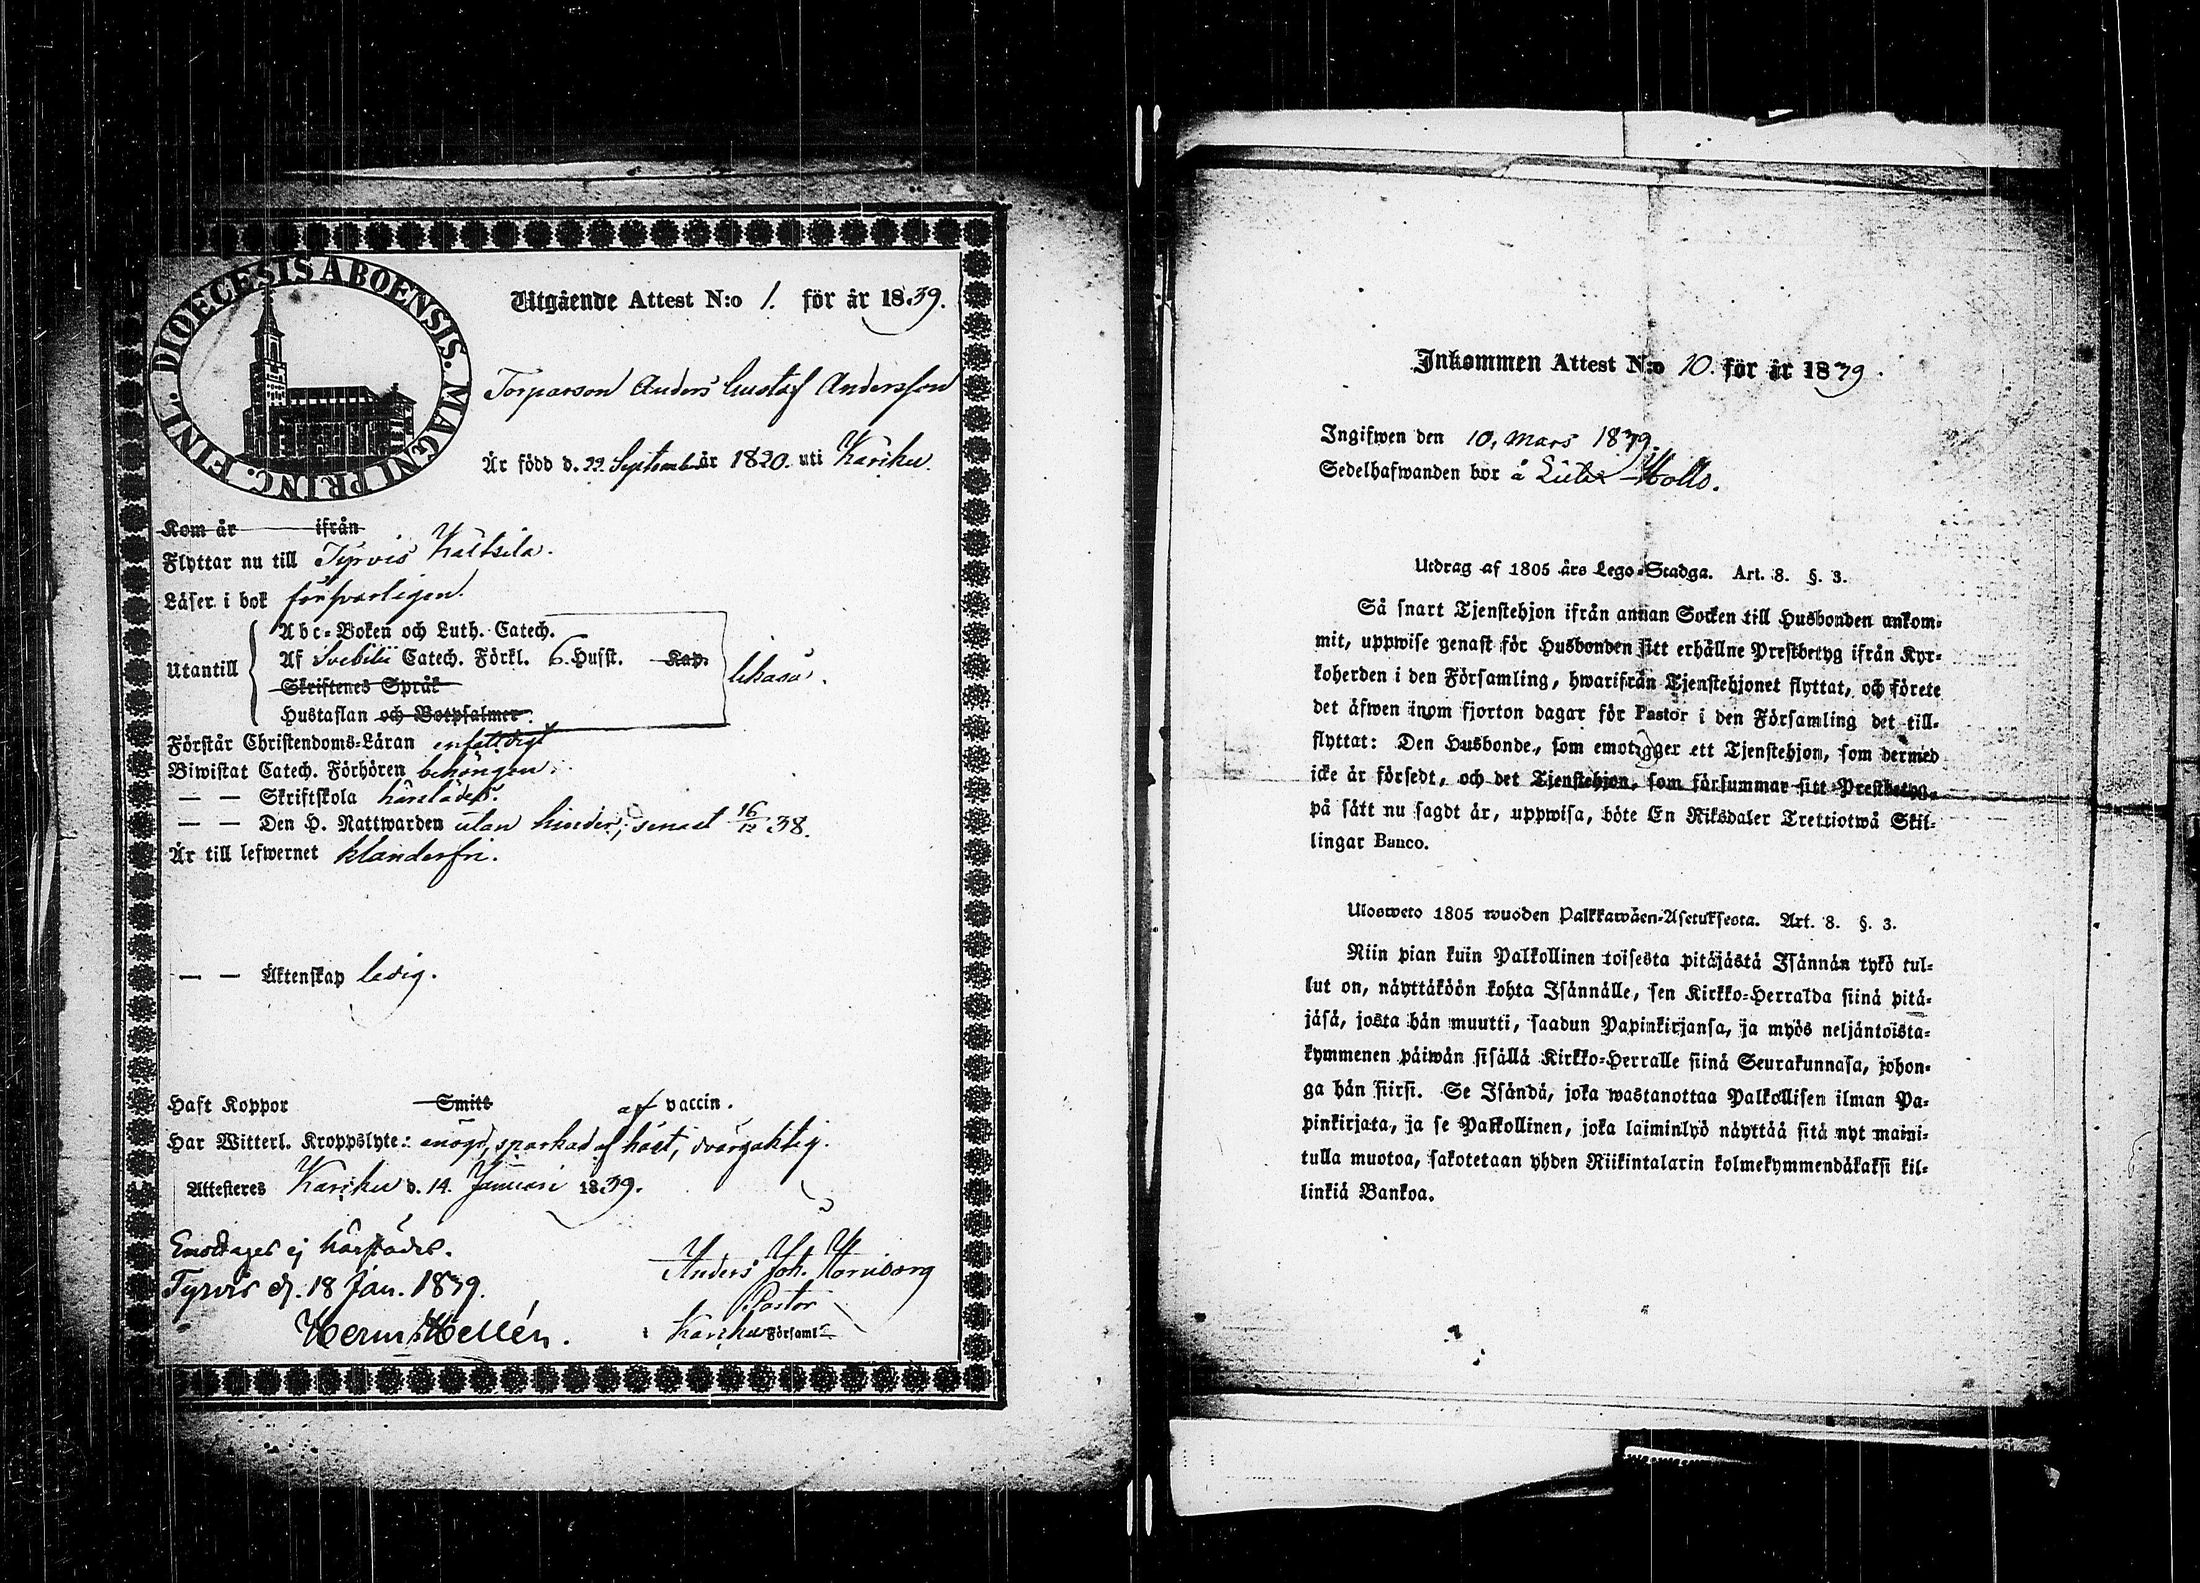 DIOECESIS ABOENSIS. MAGNI PRINC. FINL.
Utgående Attest N:o 1. för år 1839.
Torparson Anders Gustaf Andersson
Är född d. 22 Septemb år 1820. uti Karkku.
Kom år ifrån
Flyttar nu till Tyrvis Kaltsila.
Läser i bok försvarligen.
Utantill
Abc-Boken och Luth. Catech.
Af Svebilii Catech. Förkl. 6. Hufst. Kap.
Skriftenes Språk
Hustaflan och Botpsalmer.
likaså.
Förstår Christendoms-Läran enfaldigt
Biwistat Catech. Förhören behörigen.
— — Skriftskola härstädes.
— — Den H. Nattwarden utan hinder, senast 16/12 38.
Är till lefwernet klanderfri.
— — Äktenskap ledig.
Haft Koppor Smitt af vaccin.
Har Witterl. Kroppslyte: enögd, sparkad af häst, dvärgaktig.
Attesteres Karkku d. 14. Januari 1839.
Anders Joh. Hornborg
Pastor
i Karkku Församl.
Emottages ej härstädes.
Tyrvis d. 18 Jan. 1839.
Herm. Hellén.
Inkommen Attest N:o 10. för år 1839.
Ingifwen den 10. Mars 1839.
Sedelhafwanden bor å
Utdrag af 1805 års Lego-Stadga. Art. 8. §. 3.
Så snart Tjenstehjon ifrån annan Socken till Husbonden ankom-
mit, uppwise genast för Husbonden sitt erhållne Prestbetyg ifrån Kyr-
koherden i den Församling, hwarifrån Tjenstehjonet flyttat, och förete
det äfwen inom fjorton dagar för Pastor i den Församling det till-
flyttat: Den Husbonde, som emottager ett Tjenstehjon, som dermed
icke är försedt, och det Tjenstehjon, som försummar sitt Prestbetyg,
på sätt nu sagdt är, uppwisa, böte En Riksdaler Trettiotwå Skil-
lingar Banco.
Ulosweto 1805 wuoden Palkkawäen-Asetuksesta. Art. 8. §. 3.
Niin pian kuin Palkollinen toisesta pitäjästä Isännän tykö tul-
lut on, näyttäköön kohta Isännälle, sen Kirkko-Herralda siinä pitä-
jäsä, josta hän muutti, saadun Papinkirjansa, ja myös neljäntoista-
kymmenen päiwän sisällä Kirkko-Herralle siinä Seurakunnasa, johon-
ga hän siirsi. Se Isändä, joka wastanottaa Palkollisen ilman Pa-
pinkirjata, ja se Palkollinen, joka laiminlyö näyttää sitä nyt maini-
tulla muotoa, sakotetaan yhden Riikintalarin kolmekymmendäkaksi kil-
linkiä Bankoa.